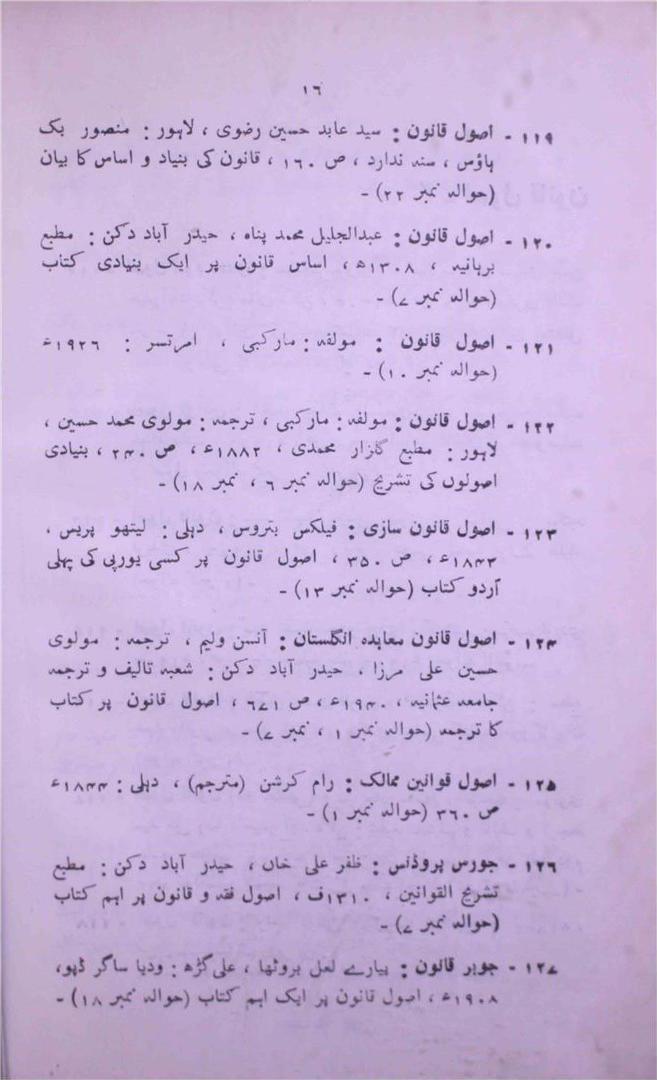 ۱۶
۱۱۹ - اصول قانون : سید عابد حسین رضوی ، لاہور : منصور بک
ہاؤس ، سنہ ندارد ، ص ۱۶۰ ، قانون کی بنیاد و اساس کا بیان
(حوالہ نمبر ۲۲) -
۱۲۰ - اصول قانون : عبدالجلیل محمد پناہ ، حیدر آباد دکن : مطبع
برہانیہ ، ۱۳۰۸ھ ، اساس قانون پر ایک بنیادی کتاب
(حوالہ نمبر ۷) -
۱۲۱ - اصول قانون : مولفہ : مارکبی ، امرتسر : ۱۹۲۶ء
(حوالہ نمبر ۱۰) -
۱۲۲ - اصول قانون : مولفہ : مارکبی ، ترجمہ : مولوی محمد حسین ،
لاہور : مطبع گلزار محمدی ، ۱۸۸۲ء ، ص ۲۴۰ ، بنیادی
اصولوں کی تشریح (حوالہ نمبر ۶ ، نمبر ۱۸) -
۱۲۳ - اصول قانون سازی : فیلکس بتروس ، دہلی : لیتھو پریس ،
۱۸۴۳ء ، ص ۳۵۰ ، اصول قانون پر کسی یورپی کی پہلی
اردو کتاب (حوالہ نمبر ۱۳) -
۱۲۴ - اصول قانون معاہدہ انگلستان : آنسن ولیم ، ترجمہ : مولوی
حسین علی مرزا ، حیدر آباد دکن : شعبہ تالیف و ترجمہ
جامعہ عثمانیہ ، ۱۹۴۰ء ، ص ۶۷۱ ، اصول قانون پر کتاب
کا ترجمہ (حوالہ نمبر ۱ ، نمبر ۷) -
۱۲۵ - اصول قوانین ممالک : رام کرشن (مترجم) ، دہلی : ۱۸۴۴ء
ص ۳۶۰ (حوالہ نمبر ۱) -
۱۲۶ - جورس پروڈنس : ظفر علی خاں ، حیدر آباد دکن : مطبع
تشریح القوانین ، ۱۳۱۰ف ، اصول فقہ و قانون پر اہم کتاب
(حوالہ نمبر ۷) -
۱۲۷ - جوہر قانون : پیارے لعل بروٹھا ، علی گڑھ : ودیا ساگر ڈپو ،
۱۹۰۸ء ، اصول قانون پر ایک اہم کتاب (حوالہ نمبر ۱۸) -